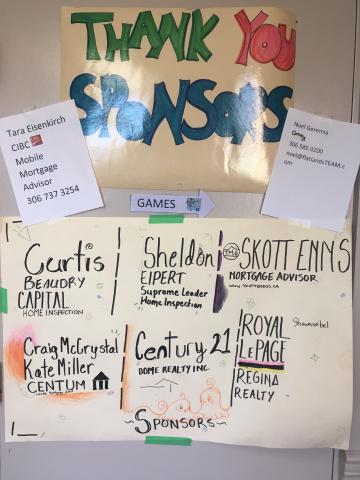 THANK YOU
SPONSORS
Tara Eisenkirch
CIBC
Mobile
Mortgage
Advisor
306 737 3254
Noel Geremia
306 585 0200
noel@flatlandsTEAM.c
om
GAMES
Curtis
BEAUDRY
CAPITAL
HOME INSPECTION
Sheldon
EIPERT
Supreme Leader
Home Inspection
SKOTT ENNS
MORTGAGE ADVISOR
Craig McCrystal
Kate Miller
CENTUM
Century 21
DOME REALTY INC.
ROYAL
LEPAGE
REGINA
REALTY
~SPONSORS~